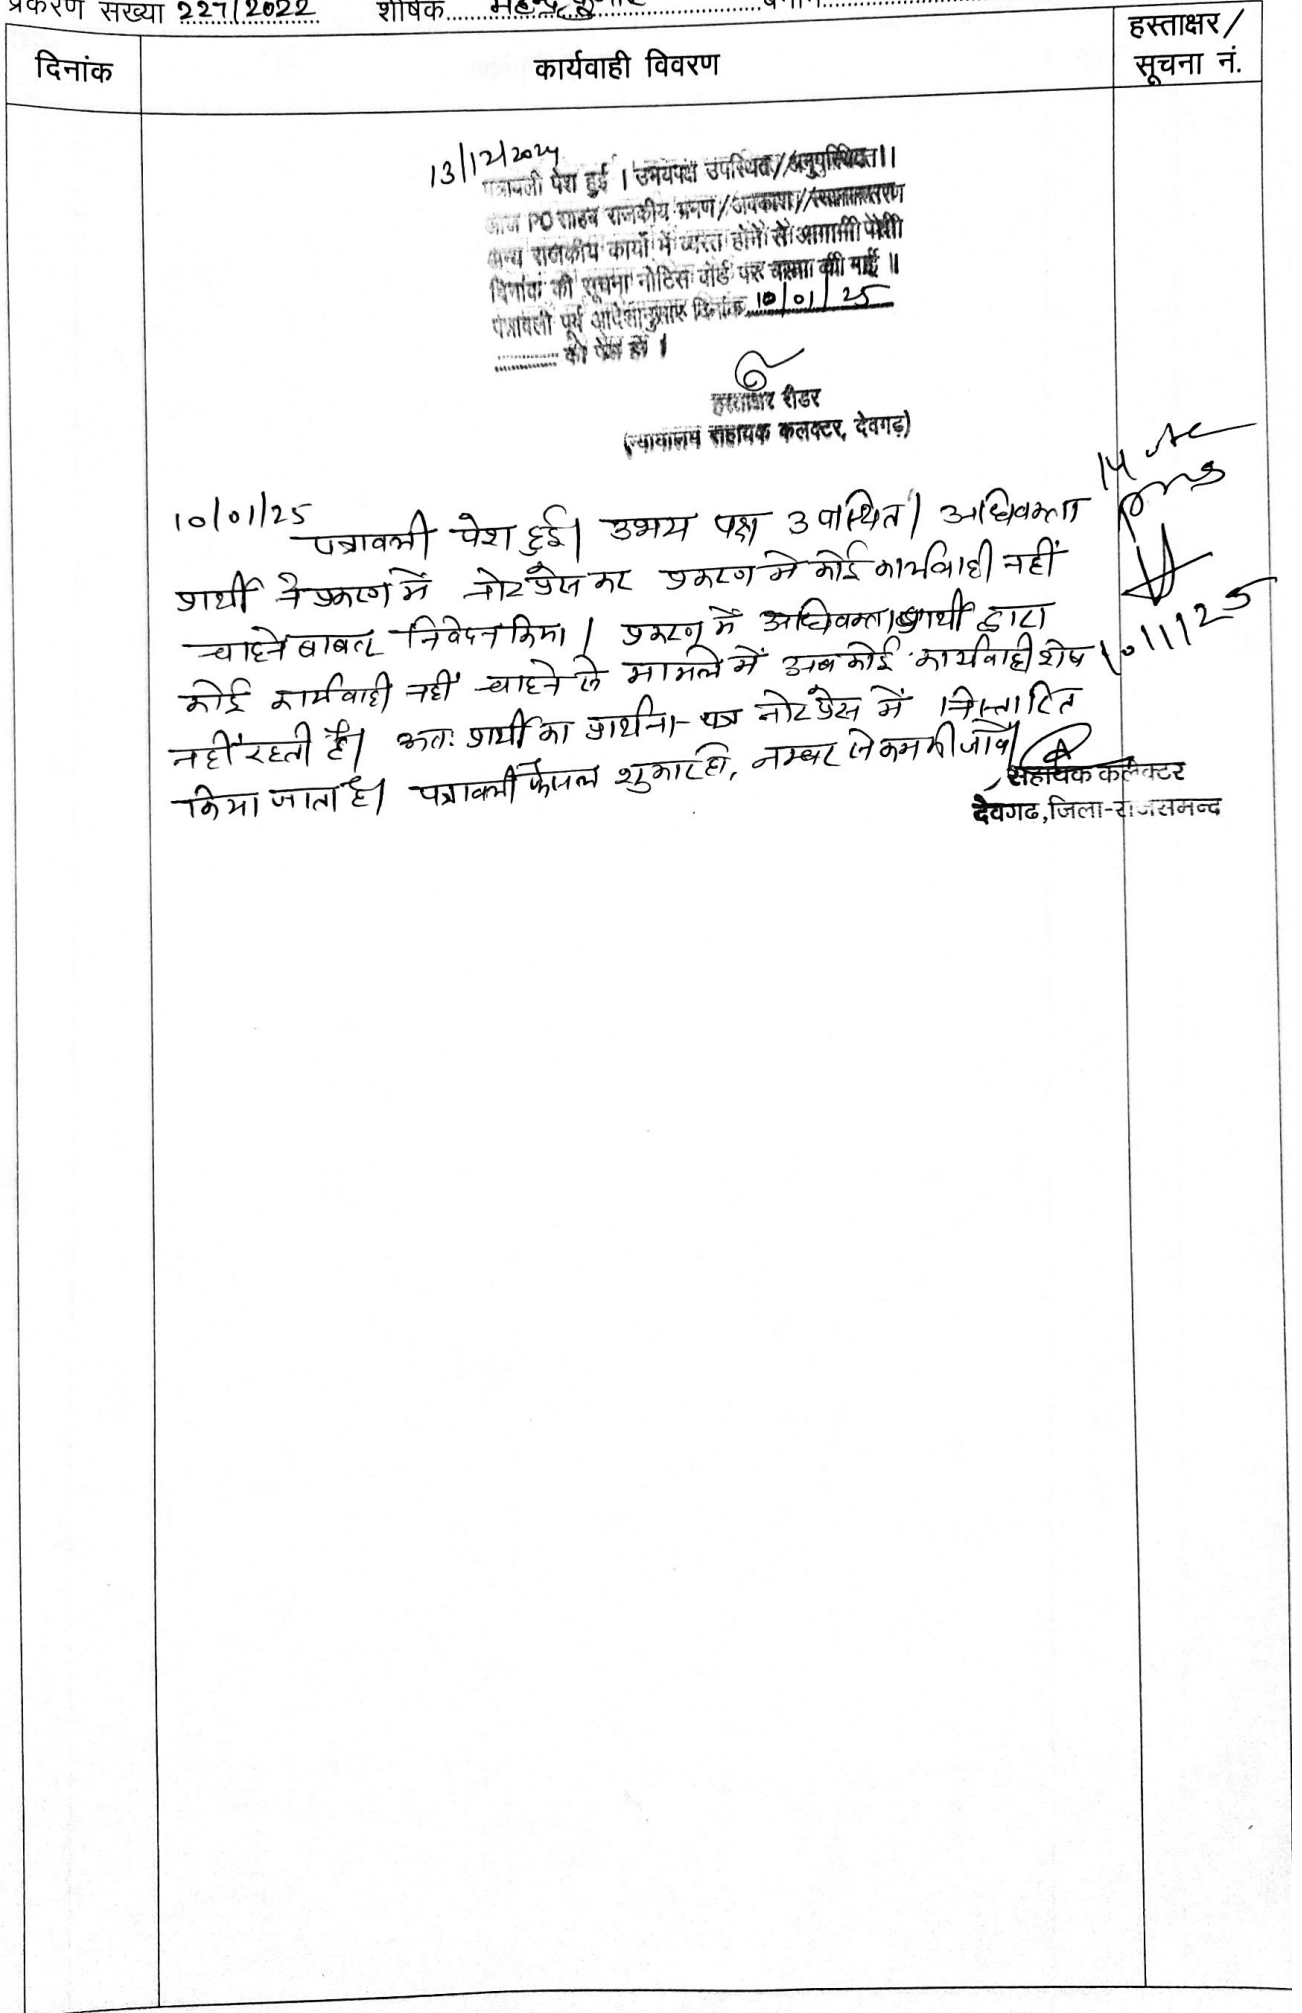 प्रकरण संख्या 227/2022 शीर्षक महेन्द्र कुमार
दिनांक
कार्यवाही विवरण
हस्ताक्षर/
सूचना नं.
13/12/2024
पत्रावली पेश हुई । उभयपक्ष उपस्थित//अनुपुस्थित।।
आज PO साहब राजकीय भ्रमण//अवकाश//स्थानान्तरण
अन्य राजकीय कार्यो में व्यस्त होने से आगामी पेशी
दिनांक की सूचना नोटिस बोर्ड पर चस्पा की गई ॥
पत्रावली पूर्व आदेशानुसार दिनांक 10/01/25
को पेश हो ।
हस्ताक्षर रीडर
(न्यायालय सहायक कलक्टर, देवगढ़)
10/01/25
पत्रावली पेश हुई। उभय पक्ष उपस्थित। अधिवक्ता
प्रार्थी ने प्रकरण में नोट प्रेस कर प्रकरण मे कोई कार्यवाही नहीं
चाहने बाबत निवेदन किया। प्रकरण में अधिवक्ता प्रार्थी द्वारा
कोई कार्यवाही नहीं चाहने से मामले में अब कोई कार्यवाही शेष
नहीं रहती है। अतः प्रार्थी का प्रार्थना-पत्र नोट प्रेस में निस्तारित
किया जाता है। पत्रावली फैसल शुमार हो, नम्बर से कम की जावे।
10/1/25
सहायक कलेक्टर
देवगढ,जिला-राजसमन्द